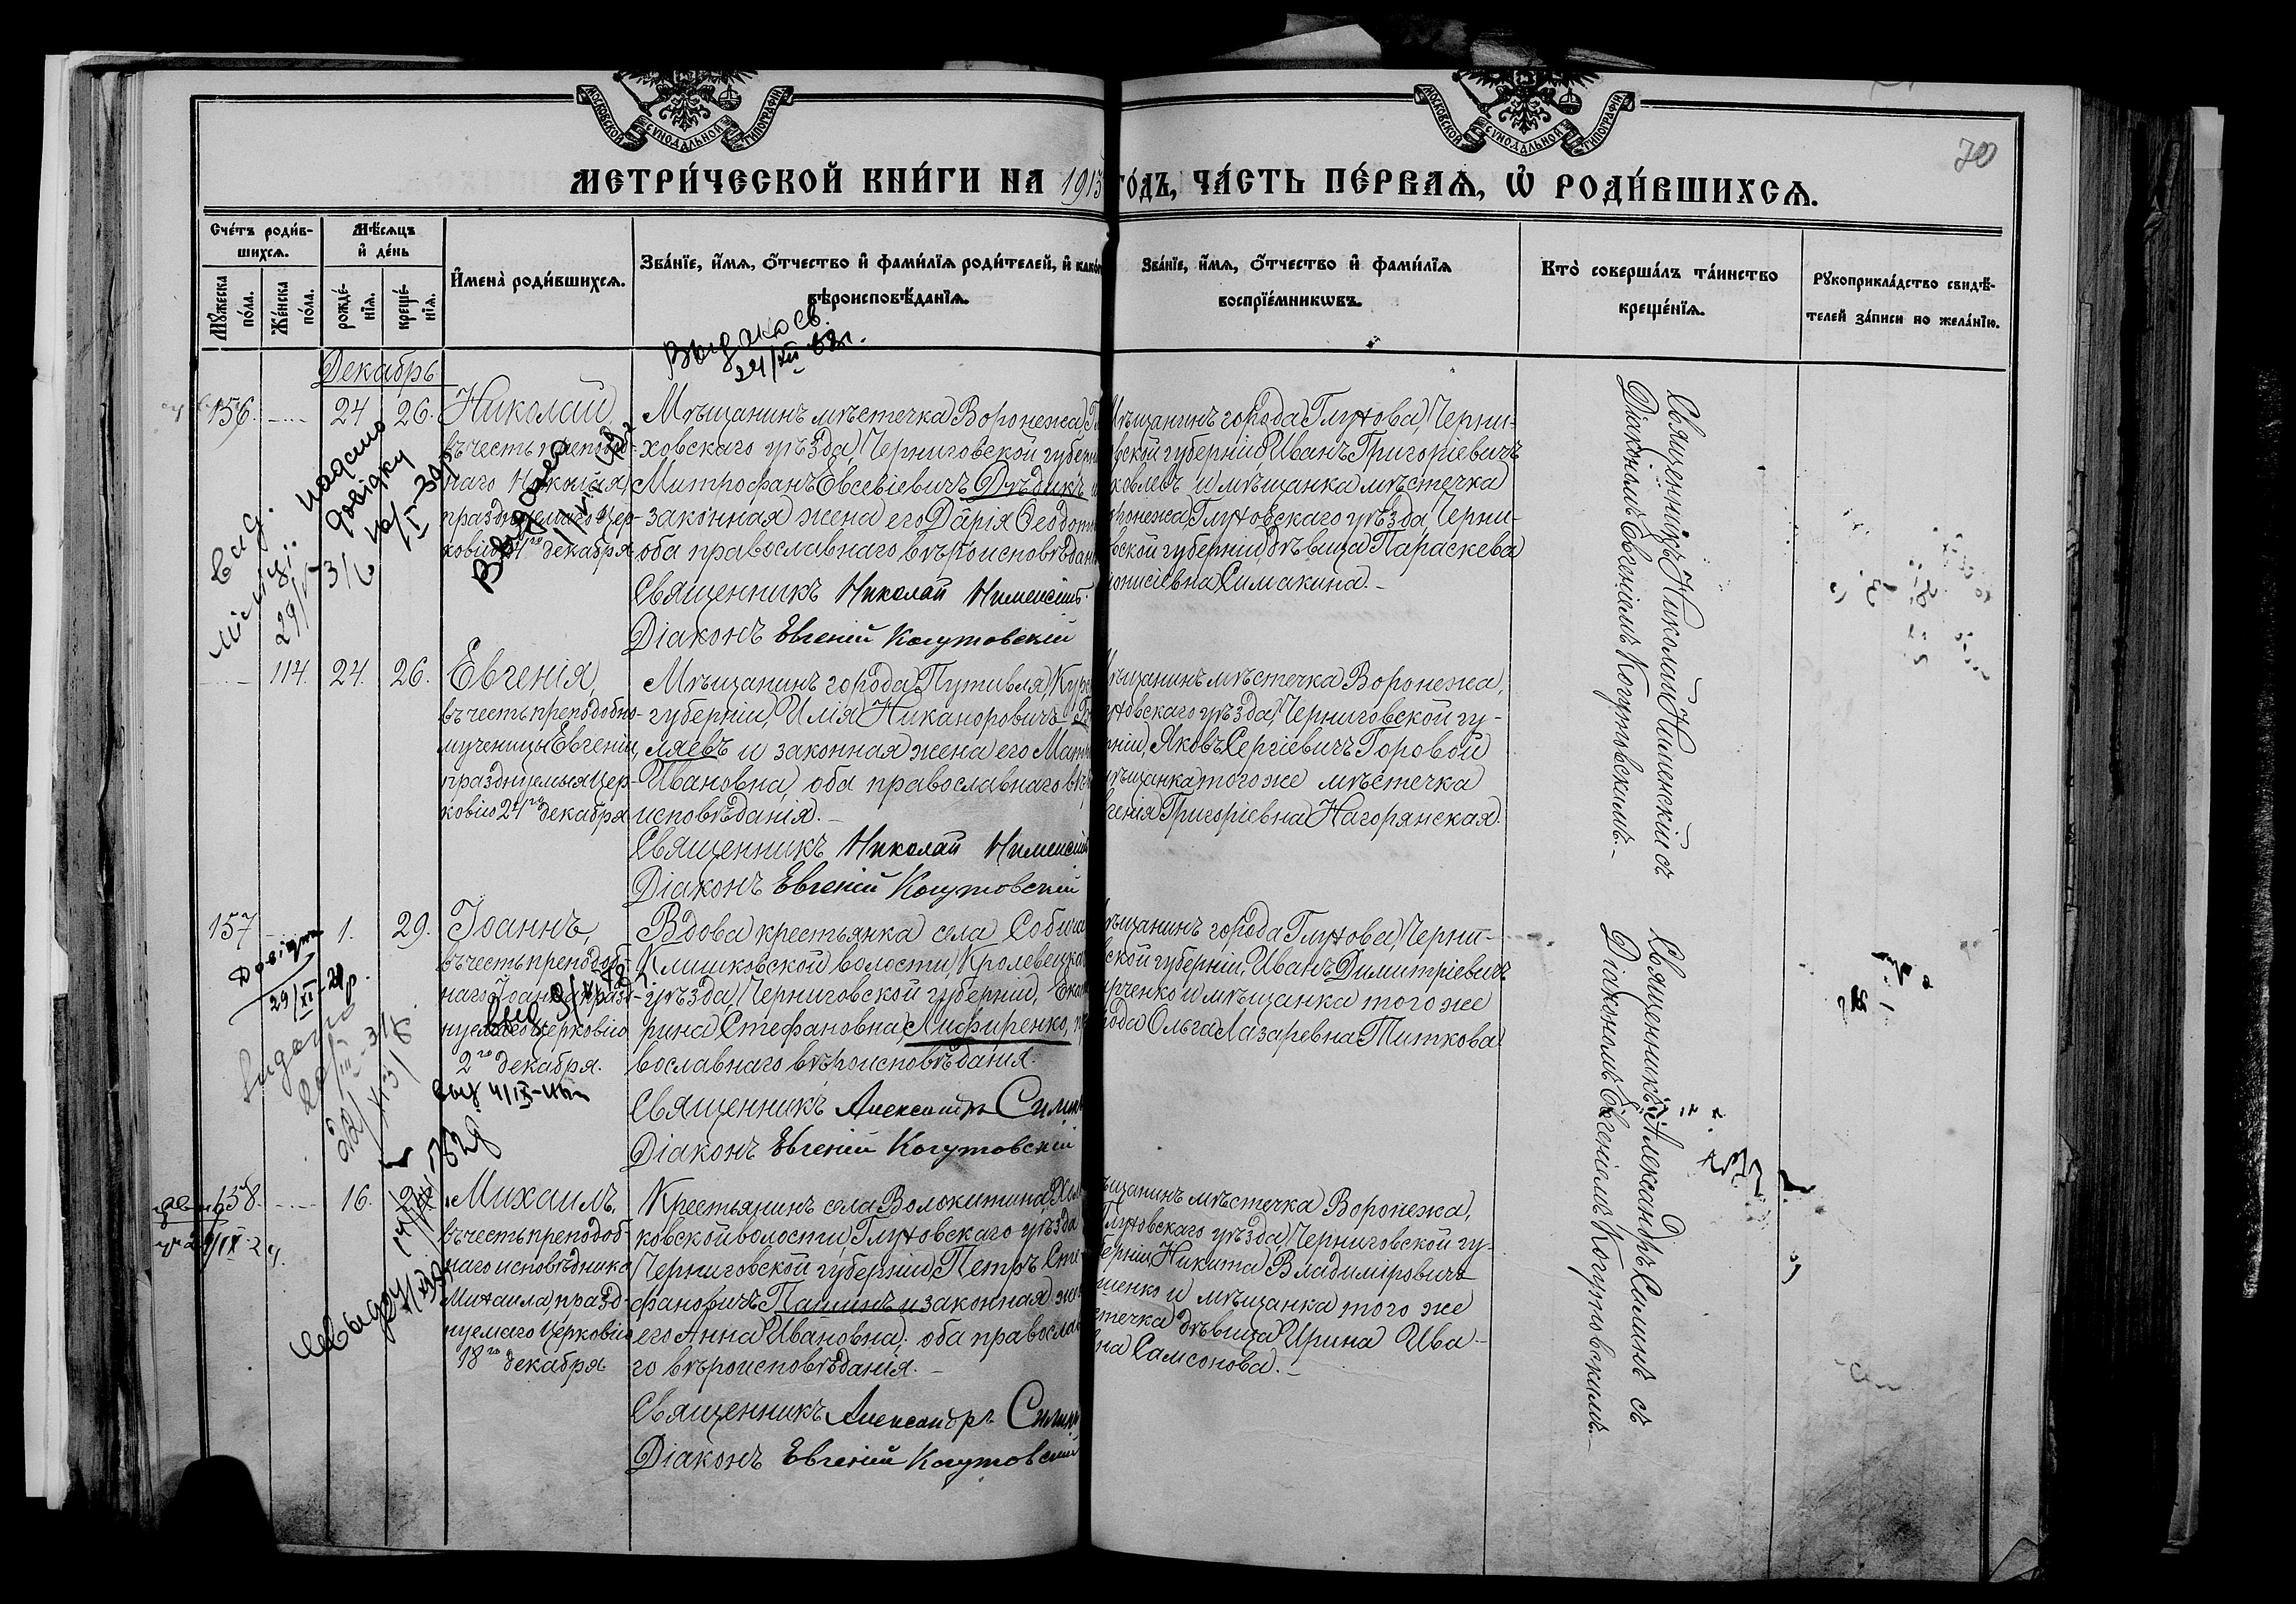 МОСКОВСКОЙ СѴНОДАЛЬНОЙ ТИПОГРАФІИ
МОСКОВСКОЙ СѴНОДАЛЬНОЙ ТИПОГРАФІИ
70
МЕТРИ́ЧЕСКОЙ КНИ́ГИ НА 1913 ГО́ДЪ, ЧА́СТЬ ПЕ́РВАѦ, Ѡ҆ РОДИ́ВШИХСѦ.
Счéтъ роди́в-
шихсѧ.
Мꙋ́жеска по́ла.
Же́нска по́ла.
Мѣ́сѧцъ
и҆ де́нь
рожде́-
нїѧ.
креще́-
нїѧ.
И҆мена̀ роди́вшихсѧ.
Зва́нїе, и҆́мѧ, ѻ҆́тчество и҆ фами́лїѧ роди́телей, и҆ како́гѡ
вѣроисповѣ́данїѧ.
Зва́нїе, и҆́мѧ, ѻ҆́тчество и҆ фами́лїѧ
воспрїе́мникѡвъ.
Кто̀ соверша́лъ та́инство
креще́нїѧ.
Рꙋкоприкла́дство свидѣ́-
телей за́писи по жела́нїю.
Декабрь
156. 24 26.
Николай,
въ честь преподоб-
наго Николая,
празднуемаго Цер-
ковію 24го декабря
Мѣщанинъ мѣстечка Воронежа, Г
ховскаго уѣзда, Черниговской губерн
Митрофанъ Евсевіевичъ Дѣдикъ и
законная жена его Дарія Ѳеодот
оба православнаго вѣроисповѣдан
Священникъ Николай Нименскій.
Діаконъ Евгеній Когутовскій
ѣщанинъ города Глухова, Черни-
ской губерніи Иванъ Григоріевичъ
ковлевъ и мѣщанка мѣстечка
оронежа, Глуховскаго уѣзда, Черни-
вской губерніи, дѣвица Параскева
іонисіевна Симакина.-
Священникъ Николай Нименскій съ
Діакономъ Евгеніемъ Когутовскимъ.-
114. 24. 26.
Евгенія,
въ честь преподобно-
мученицы Евгеніи,
празднуемыя Цер-
ковію 24го декабря
Мѣщанинъ города Путивля, Кур
губерніи, Илія Никаноровичъ
ляевъ и законная жена его Мат
Ивановна, оба православнаго вѣ
исповѣданія.-
Священникъ Николай Нименскій
Діаконъ Евгеній Когутовскій
ѣщанинъ мѣстечка Воронежа,
уховскаго уѣзда, Черниговской гу-
рніи, Яковъ Сергіевичъ Горовой
мѣщанка того же мѣстечка
генія Григоріевна Нагорянская.
157 1. 29.
Іоаннъ,
въ честь преподоб-
наго Іоанна, празд-
нуемаго Церковію
2го декабря.
Вдова крестьянка села Собича
Клишковской волости, Кролевецка
уѣзда, Черниговской губерніи, Екат
рина Стефановна Лифиренко, пр
вославнаго вѣроисповѣданія.
Священникъ Александръ Силин
Діаконъ Евгеній Когутовскій
ѣщанинъ города Глухова, Черни-
ской губерніи, Иванъ Димитріевичъ
рченко и мѣщанка того же
рода Ольга Лазаревна Титкова.
Священникъ Александръ Силинъ съ
Діакономъ Евгеніемъ Когутовскимъ.-
158. 16.
Михаилъ,
въ честь преподоб-
наго исповѣдника
Михаила, празд-
нуемаго Церковію
18го декабря
Крестьянинъ села Волокитина,
ковской волости, Глуховскаго уѣзда
Черниговской губерніи, Петръ Сте
фановичъ Пашинъ и законная же
его Анна Ивановна; оба православ
го вѣроисповѣданія.-
Священникъ Александръ Силин
Діаконъ Евгеній Когутовскій
щанинъ мѣстечка Воронежа,
Глуховскаго уѣзда, Черниговской гу-
берніи, Никита Владиміровичъ
шенко и мѣщанка того же
стечка дѣвица Ирина Ива-
на Самсонова.-